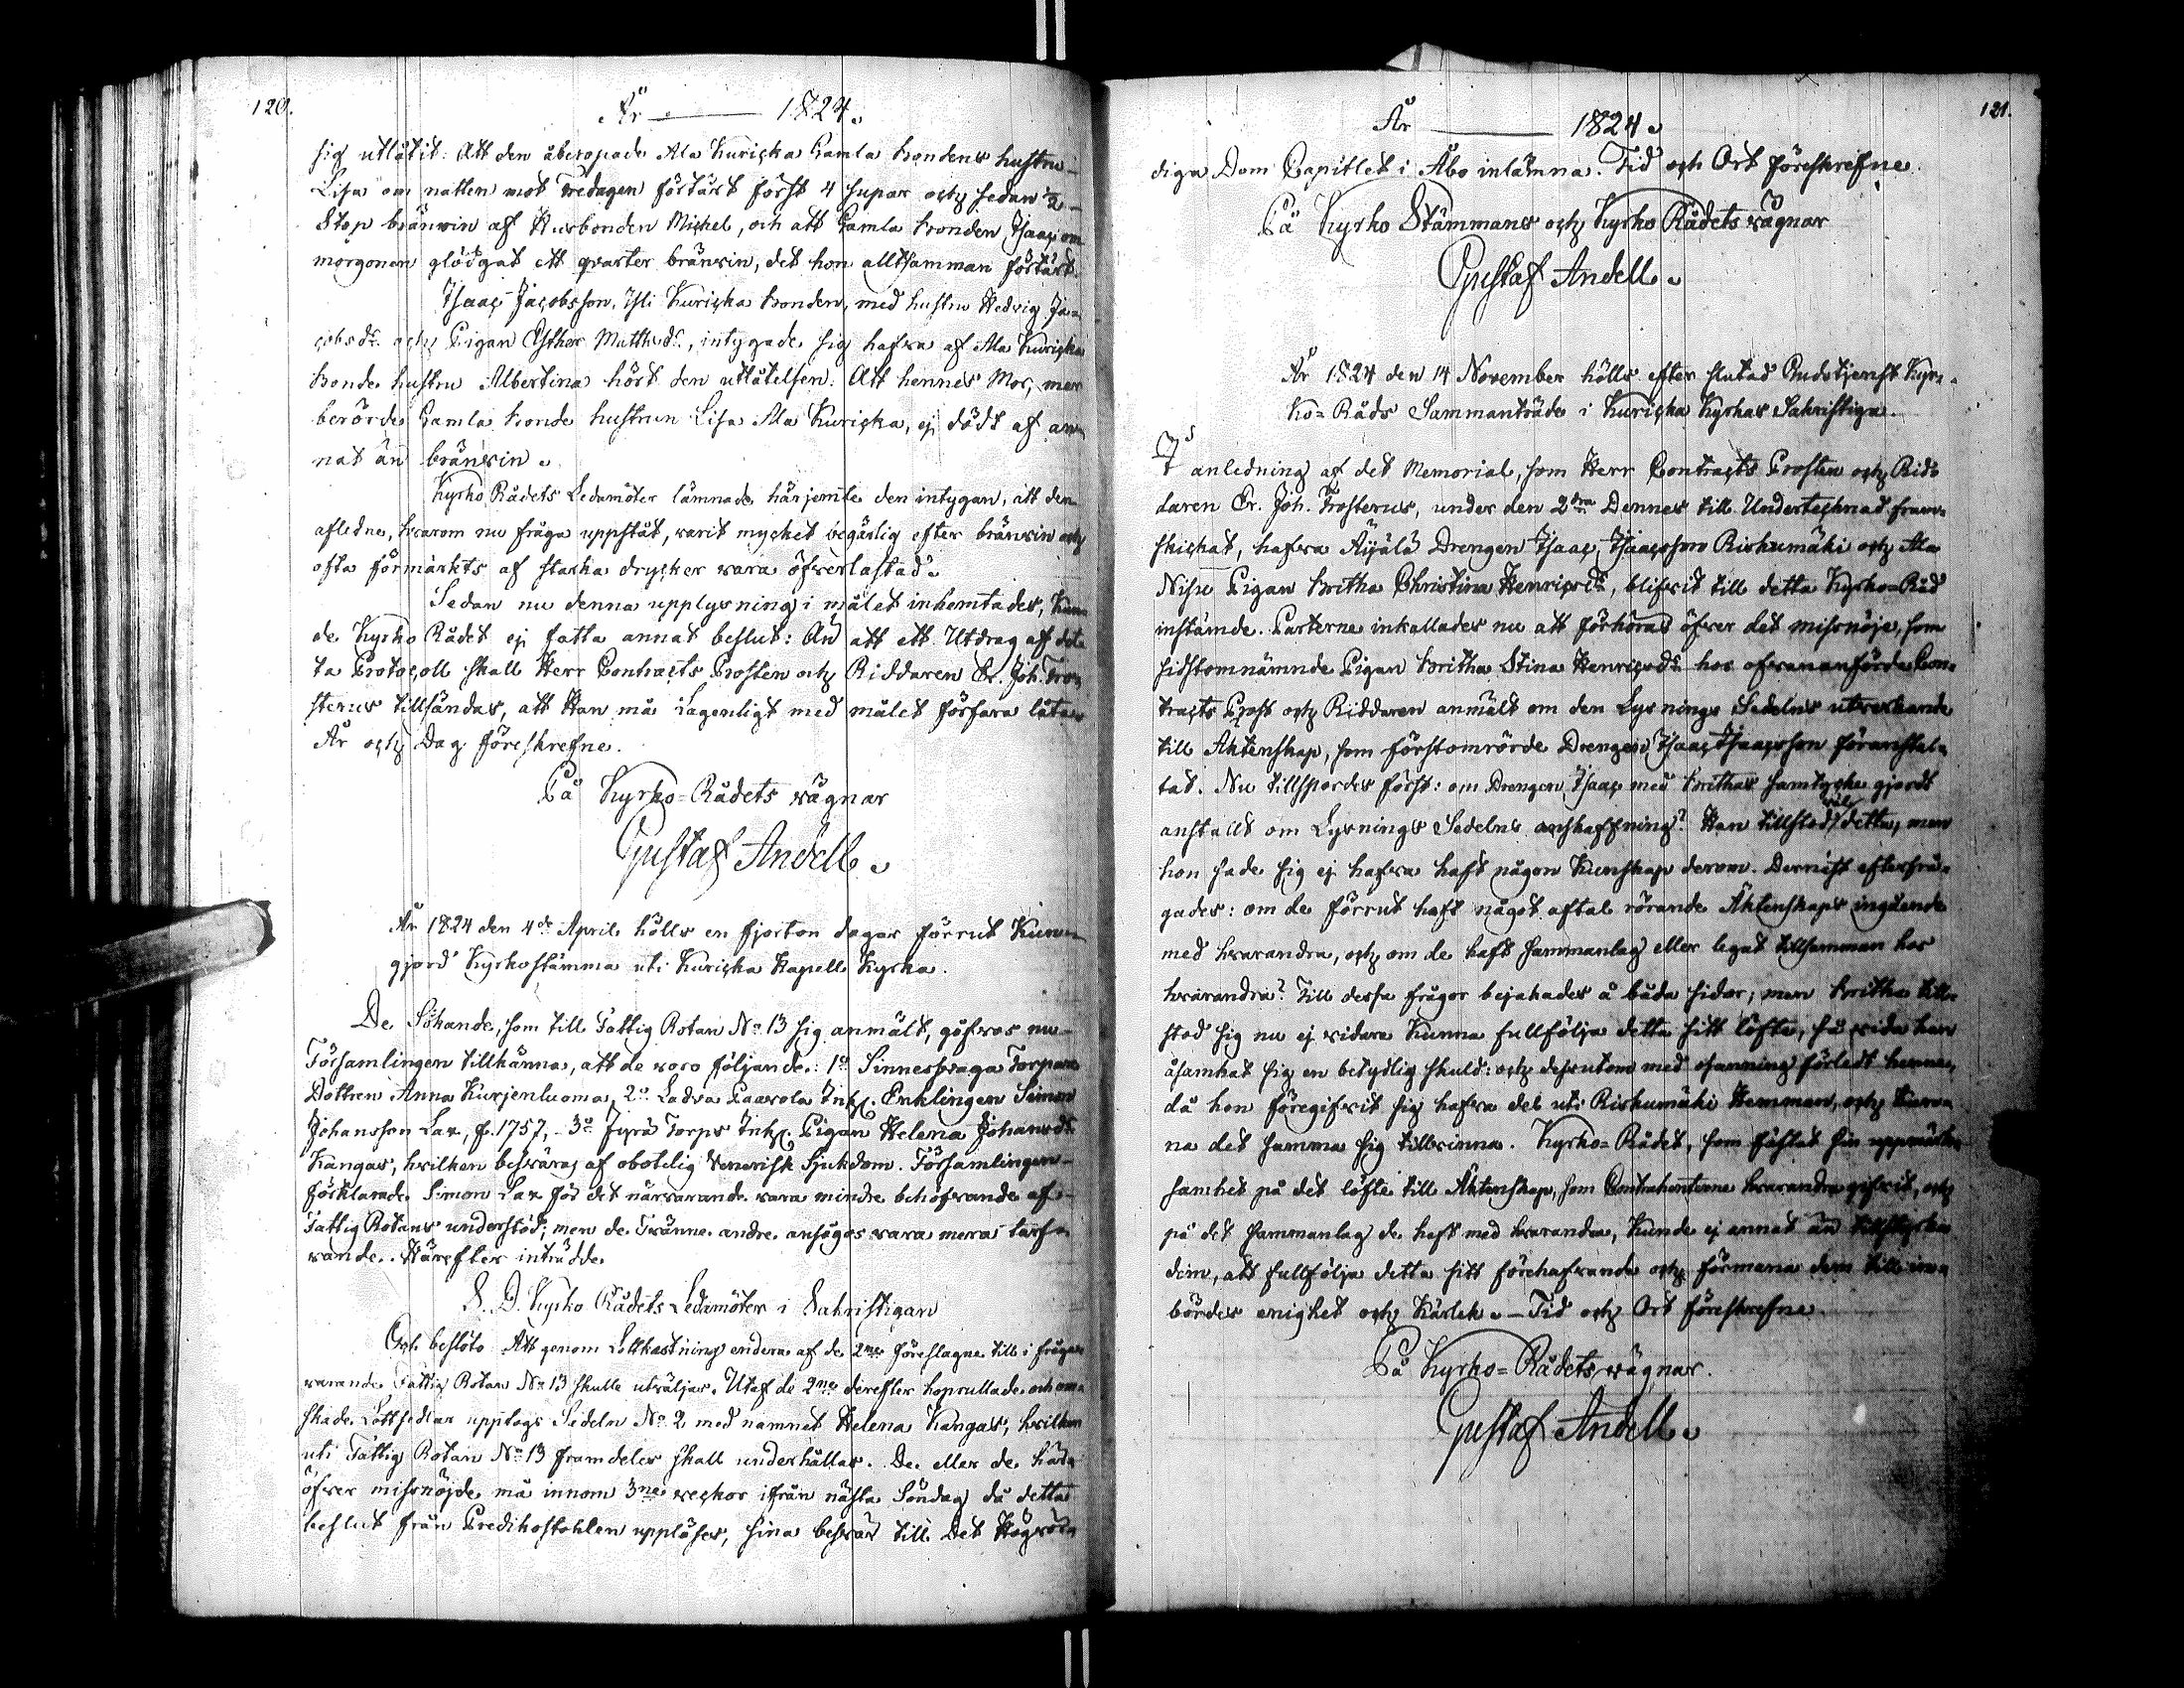 120.
År ——— 1824.
sig utlåtit: Att den åberopade Ala Kuricka Gamla bondens hustru
Lisa om natten mot Fredagen förtärt först 4 supar och sedan 1/2
Stop bränvin af Husbonden Michel, och att Gamla bonden Isaac om
morgonen glödgat ett qvarter bränvin, det hon alltsamman förtärt.
Isaac Jacobsson Yli Kuricka bonden, med hustru Hedvig Ja-
cobsdr. och Pigan Esther Matthsdr., intygade sig hafva af Ala Kuricka
bonde hustru Albertina hört den utlåtelsen: Att hennes Mor, mer
berörde Gamla bonde hustrun Lisa Ala Kuricka, ej dödt af an-
nat än bränvin.
Kyrko Rådets Ledamöter lämnade härjemte den intygan, att den
afledne, hvarom nu fråga uppstått, varit mycket begärlig efter bränvin och
ofta förmärkts af starka drycker vara öfverlastad.
Sedan nu denna upplysning i målet inhemtades, kun-
de Kyrko Rådet ej fatta annat beslut: Än att ett Utdrag af det-
ta Protocoll skall Herr Contracts Prosten och Riddaren Er. Joh. Fro-
sterus tillsändas, att Han må Lagenligt med målet förfara låta.
År och Dag föreskrefne.
På Kyrko-Rådets vägnar
Gustaf Andell.
År 1824 den 4de April hölls en fjorton dagar förrut kun-
gjord Kyrkostämma uti Kuricka Kapell Kyrka.
De Sökande, som till Fattig Rotan No 13 sig anmält, gåfvos nu
Församlingen tillkänna, att de voro följande: 1o Sinnessvaga Torpare
Dottren Anna Kurjenluoma, 2o Ladva Paavola Inh. Enklingen Simon
Johansson Lax, f. 1757, 3o Jyrä Torps Inh. Pigan Helena Johansdr.
Kangas, hvilken besväras af obotelig Venerisk Sjukdom. Församlingen
förklarade Simon Lax för det närvarande vara mindre behöfvande af
Fattig Rotans understöd; men de Tvänne andre ansågos vara mera tarf-
vande. Härefter inträdde
S. D. Kyrko Rådets Ledamöter i Sakristigan
Och beslöto Att genom Lottkastning endera af de 2ne föreslagne till i fråga
varande Fattig Rotan No 13 skulle utväljas. Utaf de 2ne derefter hoprullade och om-
skade Lottsedlar upptogs Sedeln No 2 med namnet Helena Kangas, hvilken
uti Fattig Rotan No 13 framdeles skall underhållas. De eller de här-
öfver missnöjde må innom 3ne veckor ifrån nästa Söndag då detta
beslut från Predikostohlen uppläses, sina besvär till Det Högvör-
121.
År ——— 1824.
diga Dom Capitlet i Åbo inlämna. Tid och Ort föreskrefne.
På Kyrko Stämmans och Kyrko Rådets vägnar
Gustaf Andell.
År 1824 den 14 November hölls efter slutad Gudstjenst Kyr-
ko-Råds Sammanträde i Kuricka Kyrkas Sakristiga.
I anledning af det Memorial, som Herr Contracts Prosten och Rid-
daren Er. Joh. Frosterus, under den 2dra Dennes till Undertecknad fram-
skickat, hafva Äijälä Drengen Isaac Isaacsson Riskumäki och Ala
Nisu Pigan Britha Christina Henricsdr., blifvit till detta Kyrko-Råd
instämde. Parterne inkallades nu att förhöras öfver det missnöje, som
sidstomnämnde Pigan Britha Stina Henricsdr. hos ofvananförde Con-
tracts Prost och Riddaren anmält om den Lysnings Sedelns utverkande
till Äktenskap, som förstomrörde Drengen Isaac Isaacsson föranstal-
tad. Nu tillspordes först: om Drengen Isaac med Brithas samtycke gjordt
anstalt om Lysnings Sedelns anskaffning? Han tillstod väl detta, men
hon sade sig ej hafva haft någon kunskap derom. Dernäst efterfrå-
gades: om de förrut haft något aftal rörande Äktenskaps ingående
med hvarandra, och om de haft sammanlag eller legat tillsamman hos
hvarandra? Till dessa frågor bejakades å båda sidor; men Britha till-
stod sig nu ej vidare kunna fullfölja detta sitt löfte, så vida han
åsamkat sig en betydlig skuld: och dessutom med osanning förledt henne,
då hon föregifvit sig hafva del uti Riskumäki Hemman, och kun-
na det samma sig tillvinna. Kyrko-Rådet, som fästat sin uppmärk-
samhet på det löfte till Äktenskap, som Contrahenterne hvarandra gifvit, och
på det sammanlag de haft med hvarandra, kunde ej annat än tillstyrka
dem, att fullfölja detta sitt förehafvande och förmana dem till in-
bördes enighet och kärlek. — Tid och Ort föreskrefne.
På Kyrko-Rådets vägnar.
Gustaf Andell.